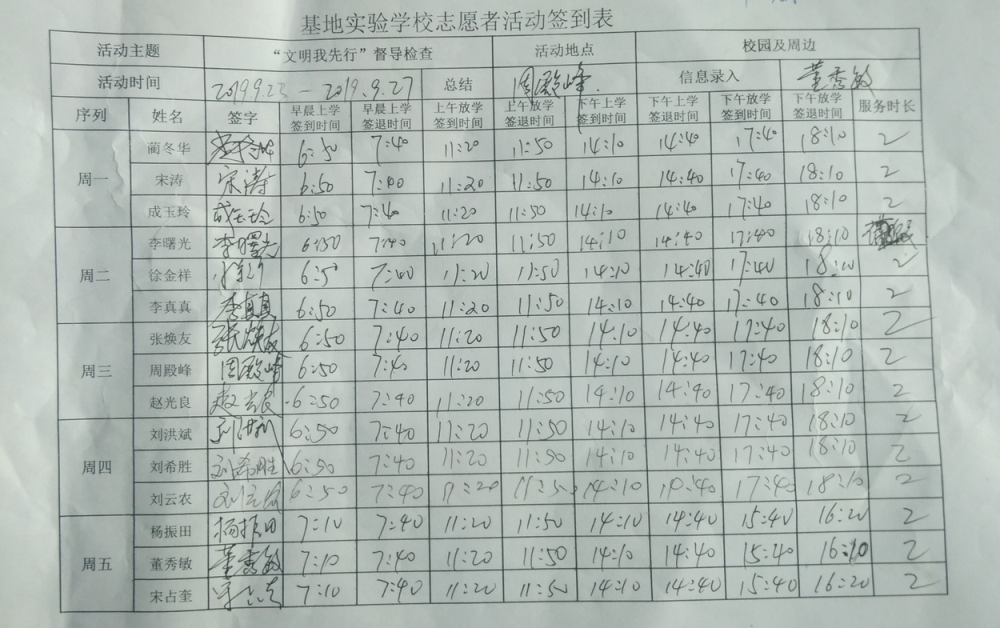 基地实验学校志愿者活动签到表
活动主题 “文明我先行”督导检查 活动地点 校园及周边
活动时间 2019.9.23—2019.9.27 总结 周殿峰 信息录入 董秀敏
序列 姓名 签字 早晨上学签到时间 早晨上学签退时间 上午放学签到时间 上午放学签退时间 下午上学签到时间 下午上学签退时间 下午放学签到时间 下午放学签退时间 服务时长
周一 蔺冬华 6:50 7:40 11:20 11:50 14:10 14:40 17:40 18:10 2
宋涛 宋涛 6:50 7:40 11:20 11:50 14:10 14:40 17:40 18:10 2
成玉玲 成玉玲 6:50 7:40 11:20 11:50 14:10 14:40 17:40 18:10 2
周二 李曙光 李曙光 6:50 7:40 11:20 11:50 14:10 14:40 17:40 18:10
徐金祥 6:50 7:40 11:20 11:50 14:10 14:40 17:40 18:10 2
李真真 李真真 6:50 7:40 11:20 11:50 14:10 14:40 17:40 18:10 2
周三 张焕友 张焕友 6:50 7:40 11:20 11:50 14:10 14:40 17:40 18:10 2
周殿峰 周殿峰 6:50 7:40 11:20 11:50 14:10 14:40 17:40 18:10 2
赵光良 赵光良 6:50 7:40 11:20 11:50 14:10 14:40 17:40 18:10 2
周四 刘洪斌 刘洪斌 6:50 7:40 11:20 11:50 14:10 14:40 17:40 18:10 2
刘希胜 刘希胜 6:50 7:40 11:20 11:50 14:10 14:40 17:40 18:10 2
刘云农 刘云农 6:50 7:40 11:20 11:50 14:10 14:40 17:40 18:10 2
周五 杨振田 杨振田 7:10 7:40 11:20 11:50 14:10 14:40 15:40 16:20 2
董秀敏 董秀敏 7:10 7:40 11:20 11:50 14:10 14:40 15:40 16:10 2
宋占奎 7:10 7:40 11:20 11:50 14:10 14:40 15:40 16:20 2